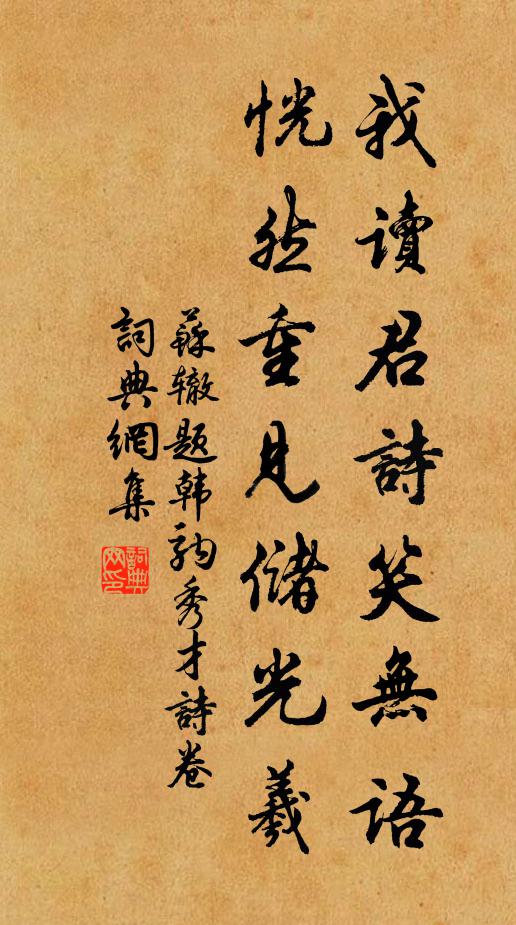 我讀君詩笑無語
恍然重見儲光羲
蘇辙题韩駒秀才詩卷
詞典網集
詞典网印